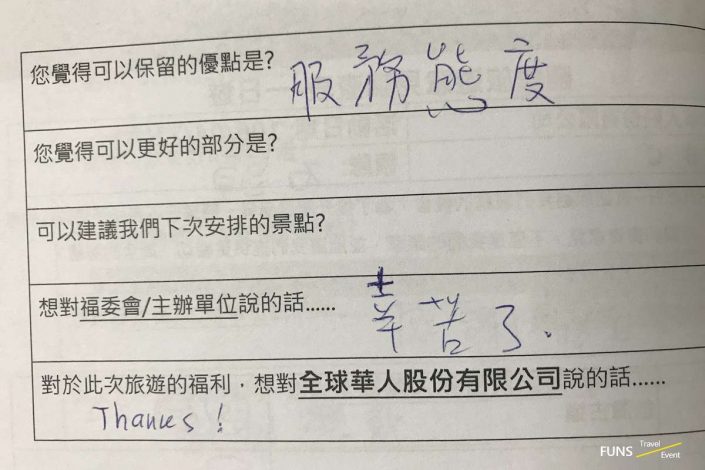 您覺得可以保留的優點是? 服務態度
您覺得可以更好的部分是?
可以建議我們下次安排的景點?
想對福委會/主辦單位說的話...... 辛苦了.
對於此次旅遊的福利,想對全球華人股份有限公司說的話......
Thanks!
FUNS Travel Event